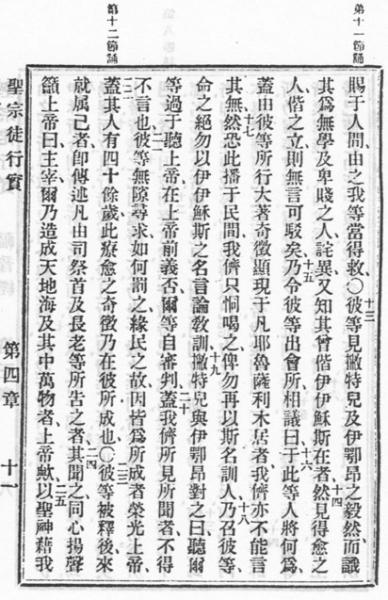 第十一節誦
第十二節誦
賜于人間由之我等當得救○彼等見撒特兒及伊鄂昂之毅然而識
十三
其為無學及卑賤之人詫異又知其曾偕伊伊穌斯在者然見得愈之
十四
人偕之立則無言可駁矣乃令彼等出會所相議曰于此等人將何為
十五 十六
蓋由彼等所行大著奇徵顯現于凡耶魯薩利木居者我儕亦不能言
其無然恐此播于民間我儕只恫喝之俾勿再以斯名訓人乃召彼等
十七 十八
命之絕勿以伊伊穌斯之名言論敎訓撒特兒與伊鄂昂對之曰聽爾
十九
等過于聽上帝在上帝前義否爾等自審判蓋我儕所見所聞者不得
二十
不言也彼等無隙尋求如何罰之緣民之故因皆為所成者榮光上帝
二一
蓋其人有四十餘歲此療愈之奇徵乃在彼所成也○彼等被釋後來
二二 二三
就属己者卽傳述凡由司祭首及長老等所告之者其聞之同心揚聲
二四
籲上帝曰主宰爾乃造成天地海及其中萬物者上帝歟以聖神藉我
二五
聖宗徒行實
第四章
十一